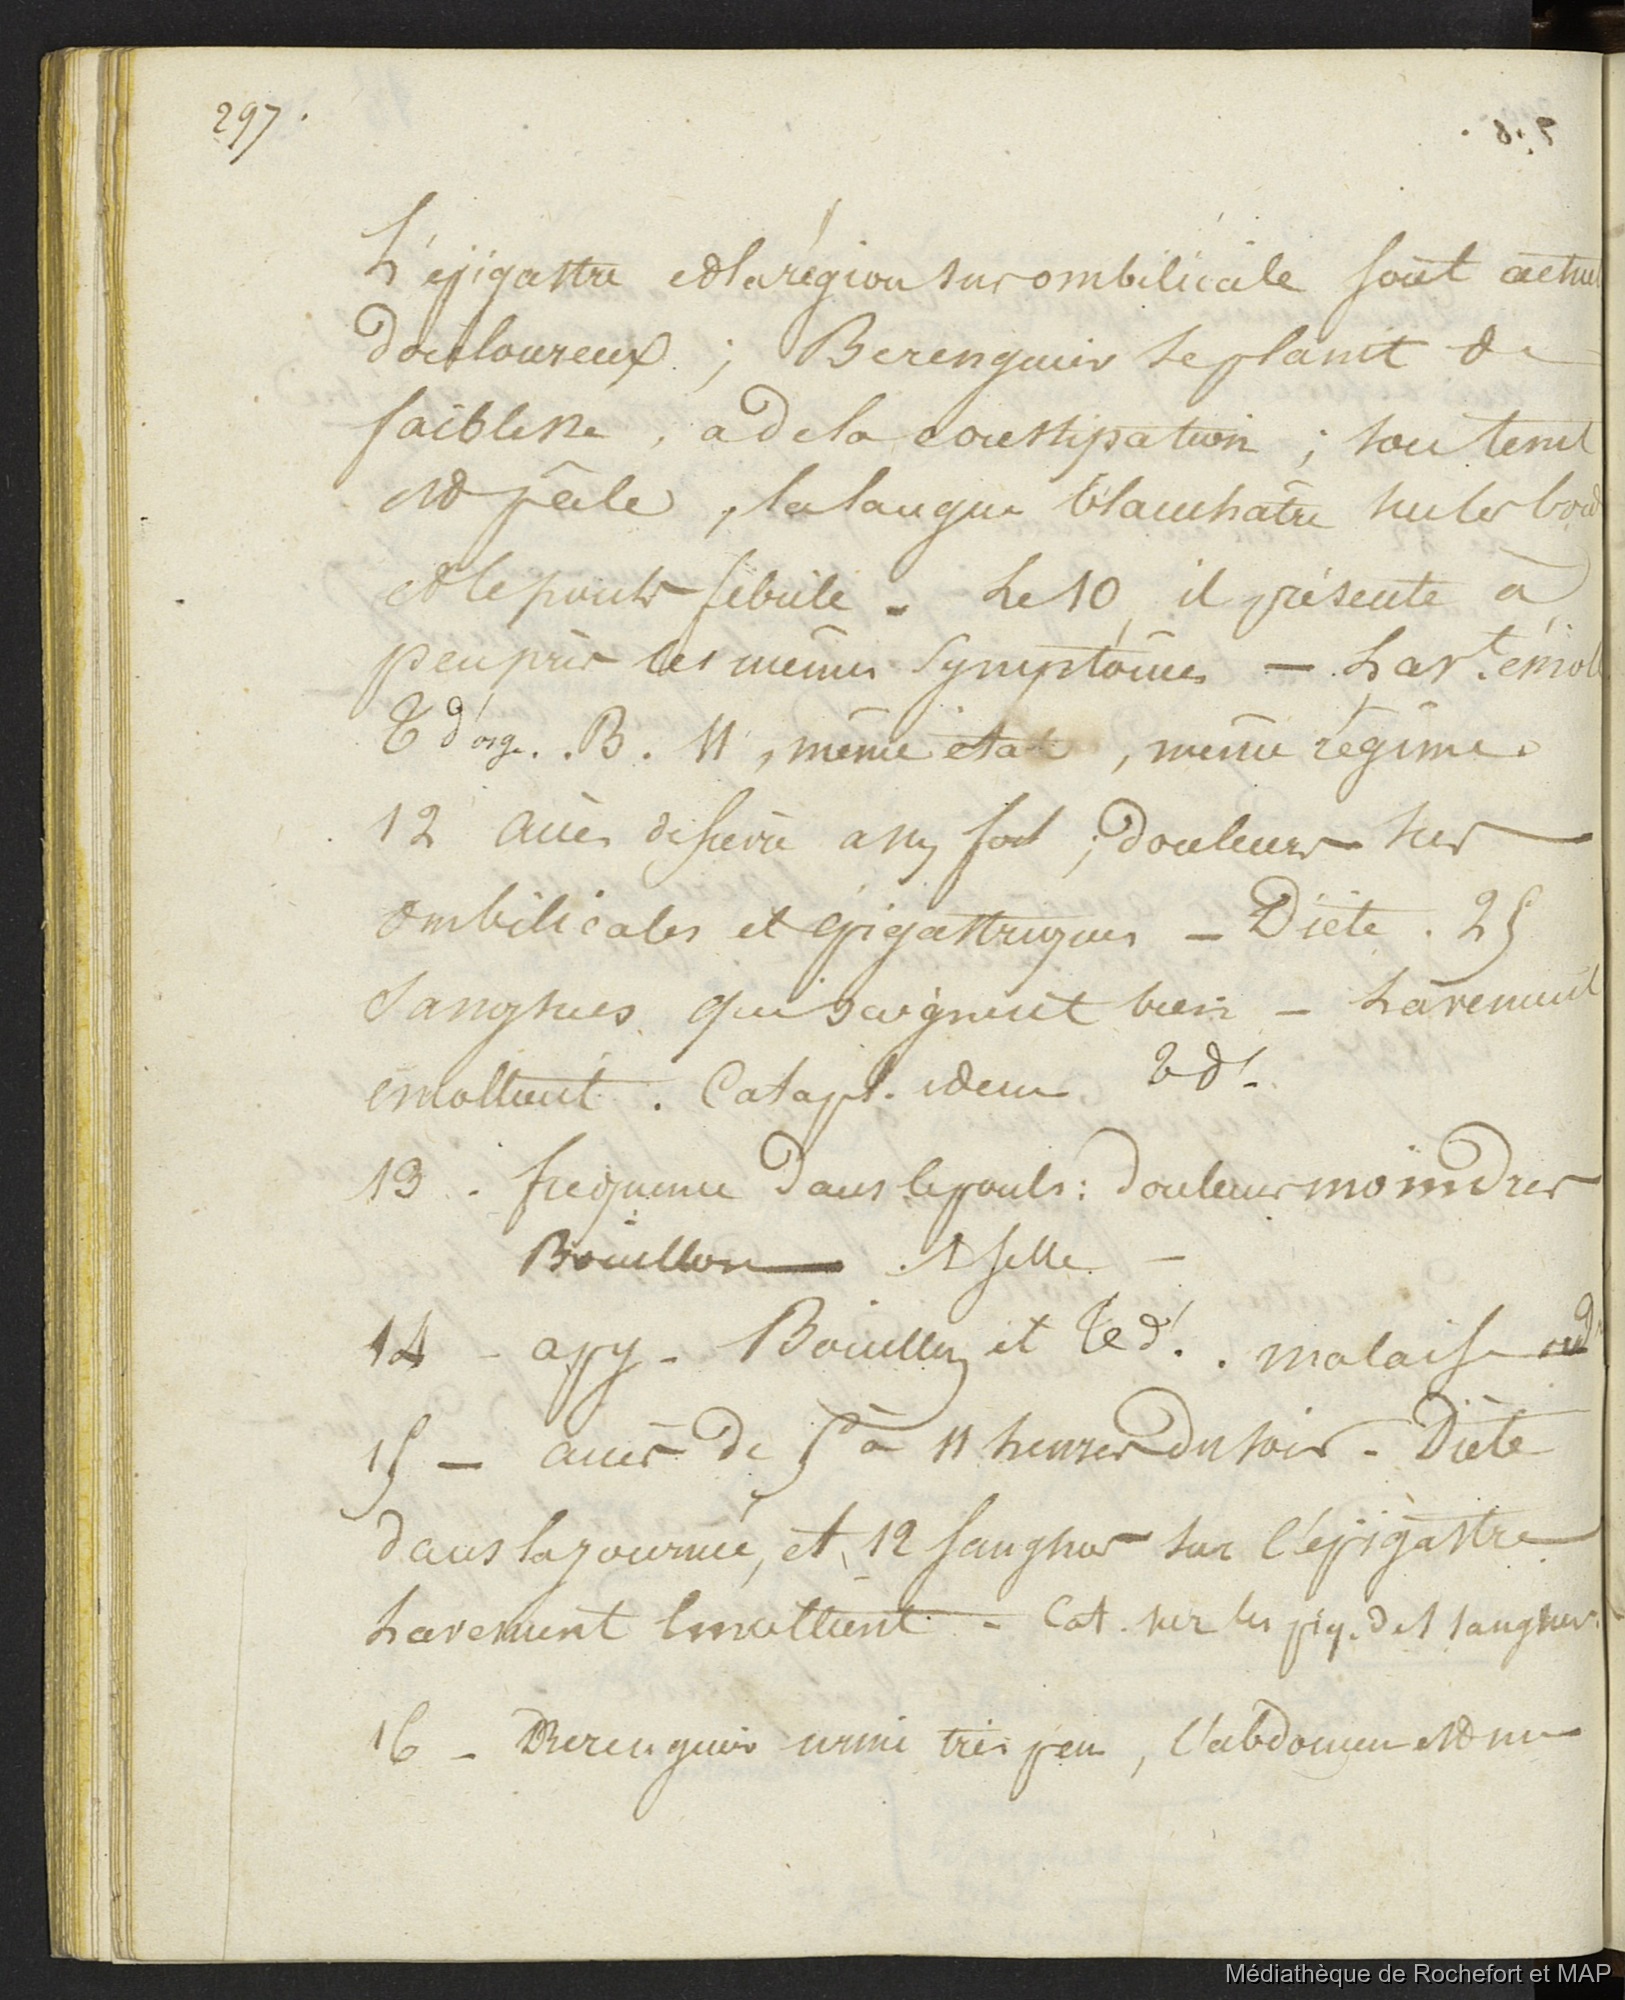 297.
L'épigastre et la région sur ombilicale sont actuel
douloureux ; Berenguier se plaint de
faiblesse, a de la constipation ; son teint
est pâle, la langue blanchâtre sur les bords
et le pouls fébrile - Le 10, il présente à
peu près les mêmes symptômes - Lavt. émoll
T d'org. . B. 11, même état, même régime.
12 accès de fièvre assez fort ; douleurs sur
ombilicales et épigastriques - Diète . 25
Sangsues qui saignent bien - Lavement
émollient . Catapl. idem T d'.
13 . fréquence dans le pouls : douleurs moindres
Bouillon - 1 selle -
14 - apy - Bouillon et T d'. . malaise
15 - accès de 5 à 11 heures du soir - Diète
dans la journée, et 12 sangsues sur l'épigastre
Lavement Emollient - Cat. sur les piq. des sangsues.
16 - Berenguier urine très peu, l'abdomen est un
Médiathèque de Rochefort et MAP